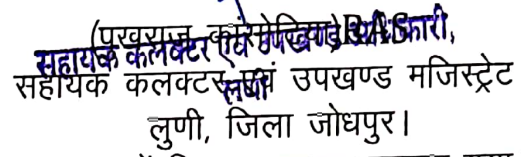 (पुखराज कांसोटिया) RAS
सहायक कलक्टर एवं उपखण्ड अधिकारी,
सहायक कलक्टर एवं उपखण्ड मजिस्ट्रेट
लूणी
लुणी, जिला जोधपुर।